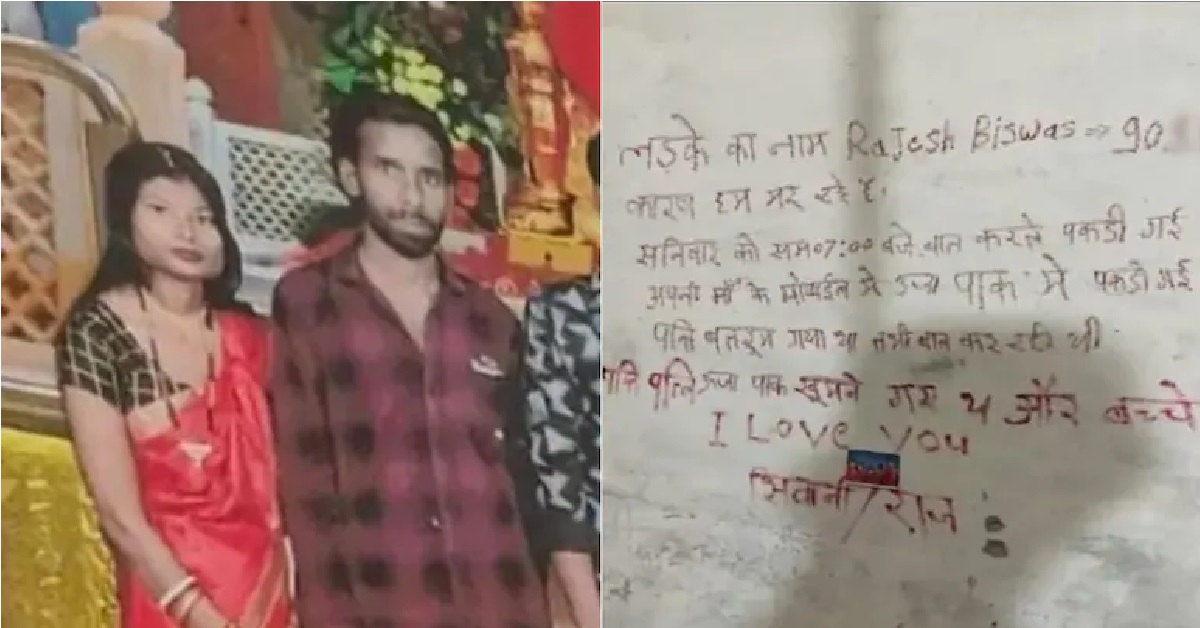 लड़के का नाम RaJesh Biswas => 90
कारण हम मर रहे है.
सनिवार को समय 07:00 बजे बात करते पकडी गई
अपनी माँ के मोबाईल से ऊर्जा पाक में पकडी गई
पति बातरूम गया था तभी बात कर रही थी
पति पत्नि ऊर्जा पाक घूमने गए थे और बच्चे
I LOVE YOU
शिवानी/राज